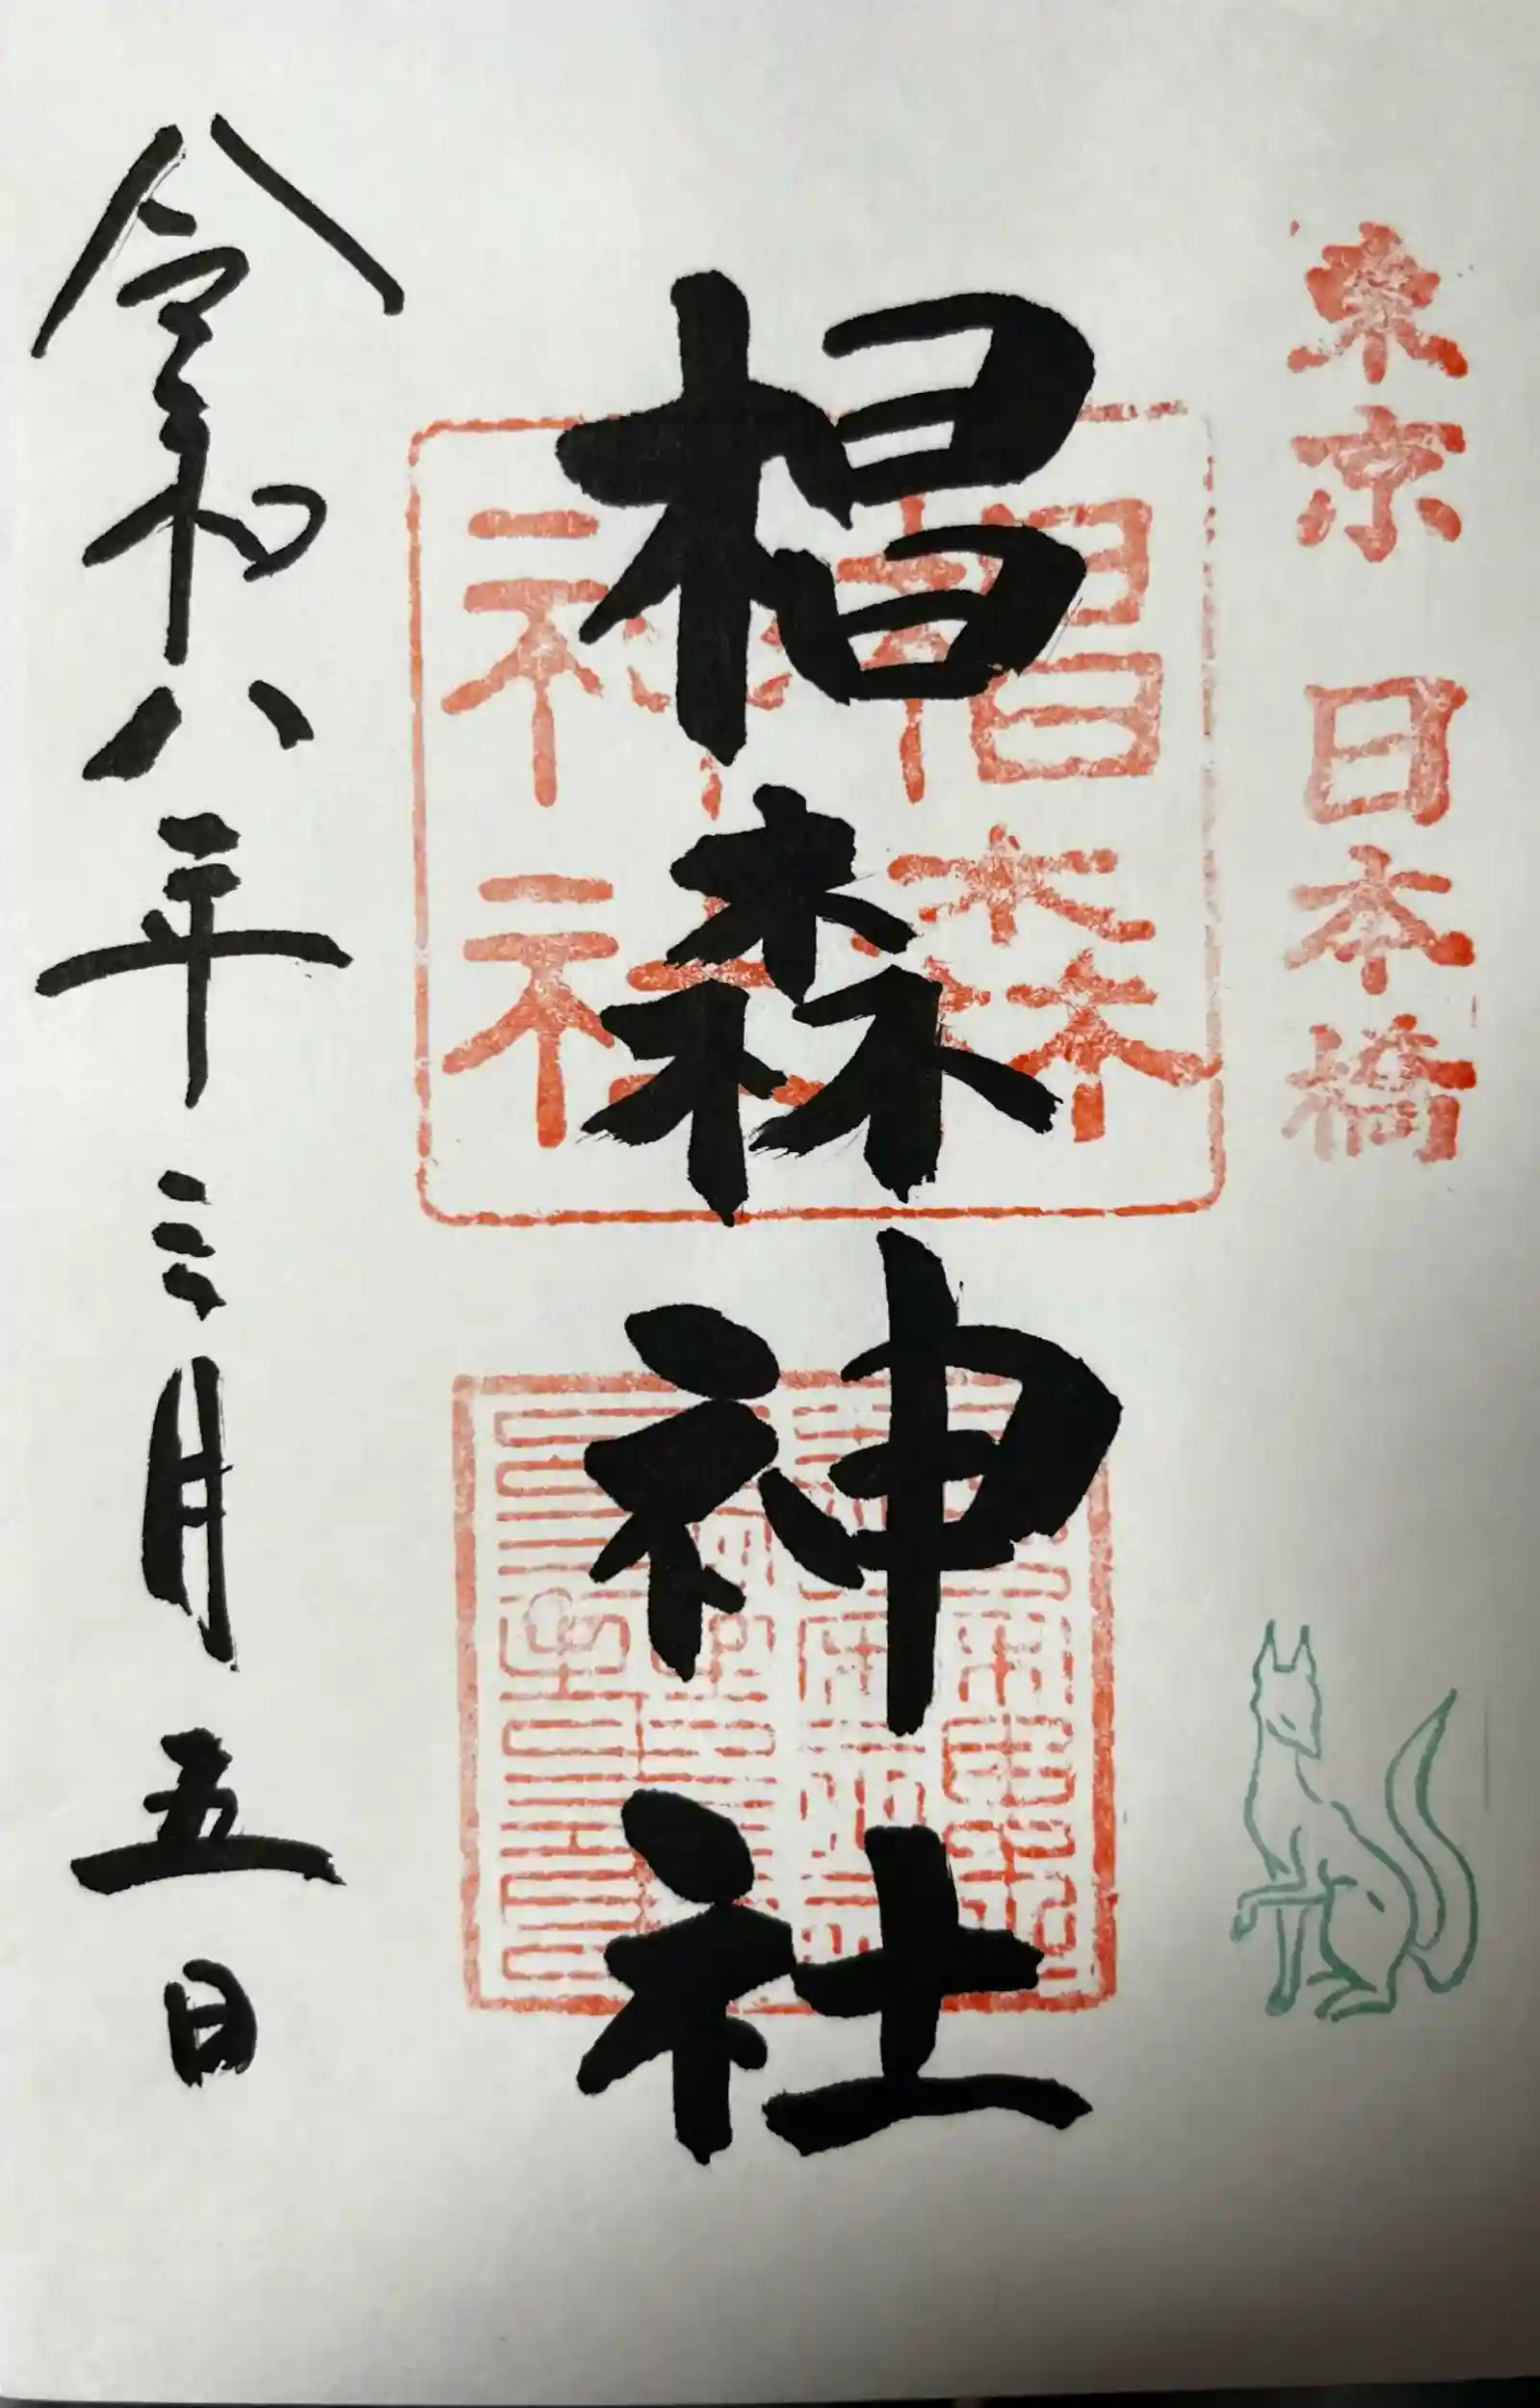 東京 日本橋
椙森神社
椙森
神社
令和八年三月五日